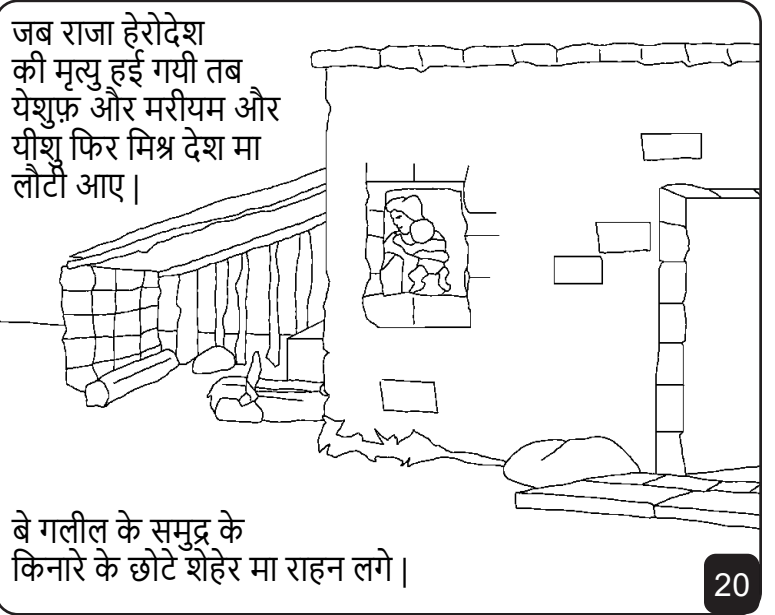 जब राजा हेरोदेश
की मृत्यु हई गयी तब
येशुफ़ और मरीयम और
यीशु फिर मिश्र देश मा
लौटी आए |
बे गलील के समुद्र के
किनारे के छोटे शेहेर मा राहन लगे |
20